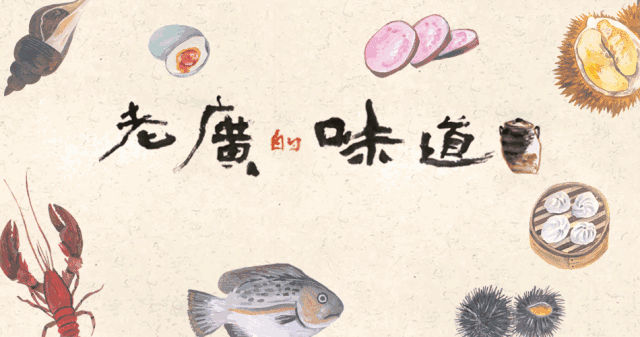 老廣的味道